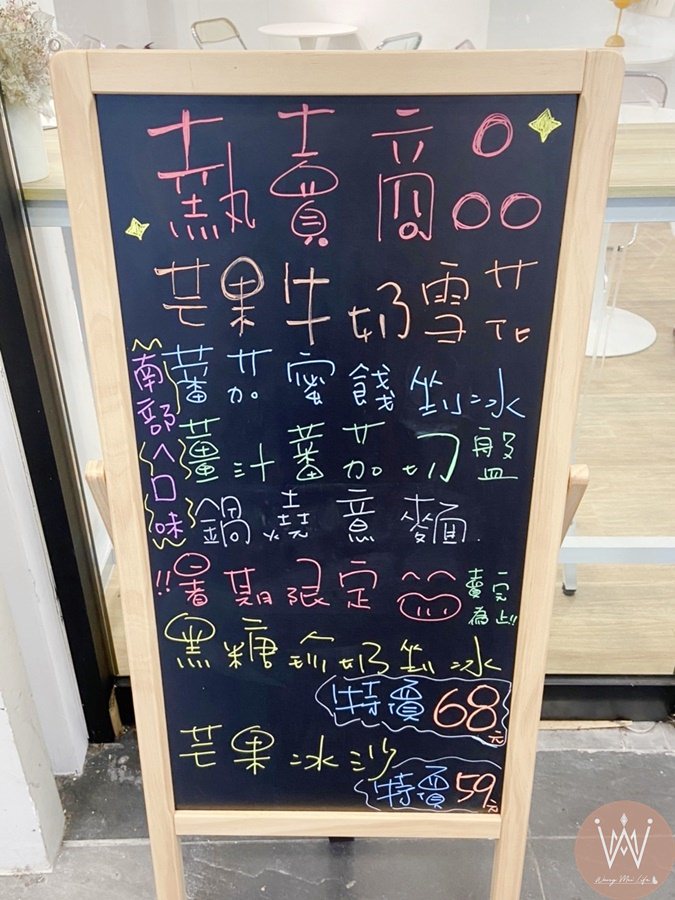 熱賣商品
芒果牛奶雪花
南部ㄟ口味
蕃茄蜜餞剉冰
薑汁蕃茄切盤
鍋燒意麵
!!暑期限定
賣完為止!!
黑糖珍奶剉冰
特價68元
芒果冰沙
特價59元